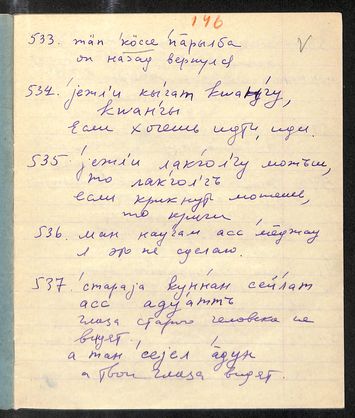 146
533. тäп 'кöссе 'пāрылба
он назад вернулся
534. 'jежлʼи кы́гат кwа́нгу,
кwан'гы
Если хочешь идти, иди.
535. 'jежлʼи лак'голʼгу можъш,
то лак'голʼгъ
если крикнуть можешь,
то крикни
536. ман наугам асс 'ме̄джау
я это не сделаю.
537. 'стараjа 'куннан сейлат
асс аду'аттъ
глаза старого человека не
видят.
а тан 'сеjел 'āдун
а твои глаза видят.